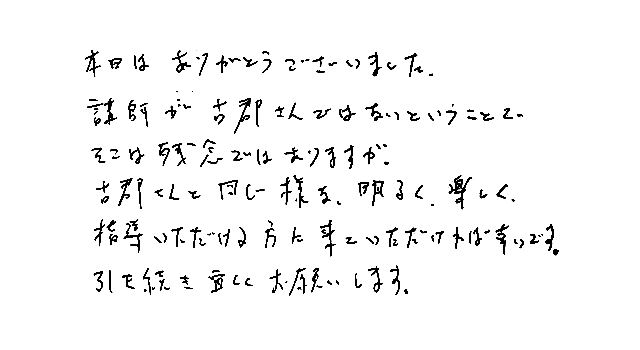 本日は ありがとうございました.
講師が 古郡さんではないということで.
そこは 残念ではありますが.
古郡さんと同じ様な、明るく、楽しく、
指導いただける方に来ていただければ幸いです。
引き続き宜しくお願いします。